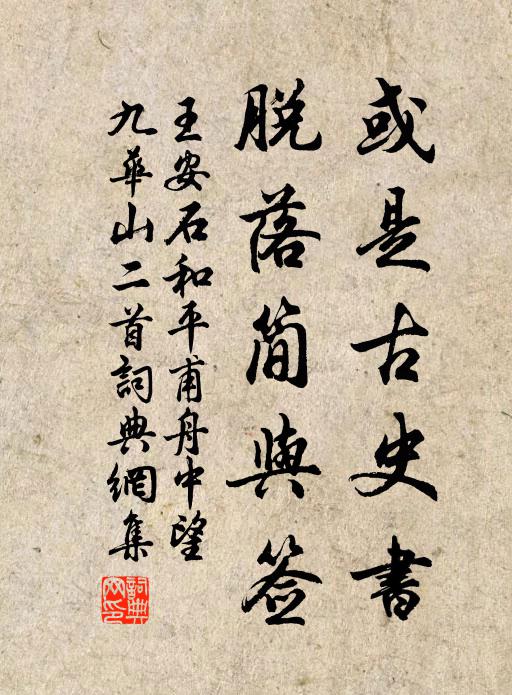 或是古史書
脱落簡與签
王安石和平甫舟中望
九華山二首詞典網集
詞典網印